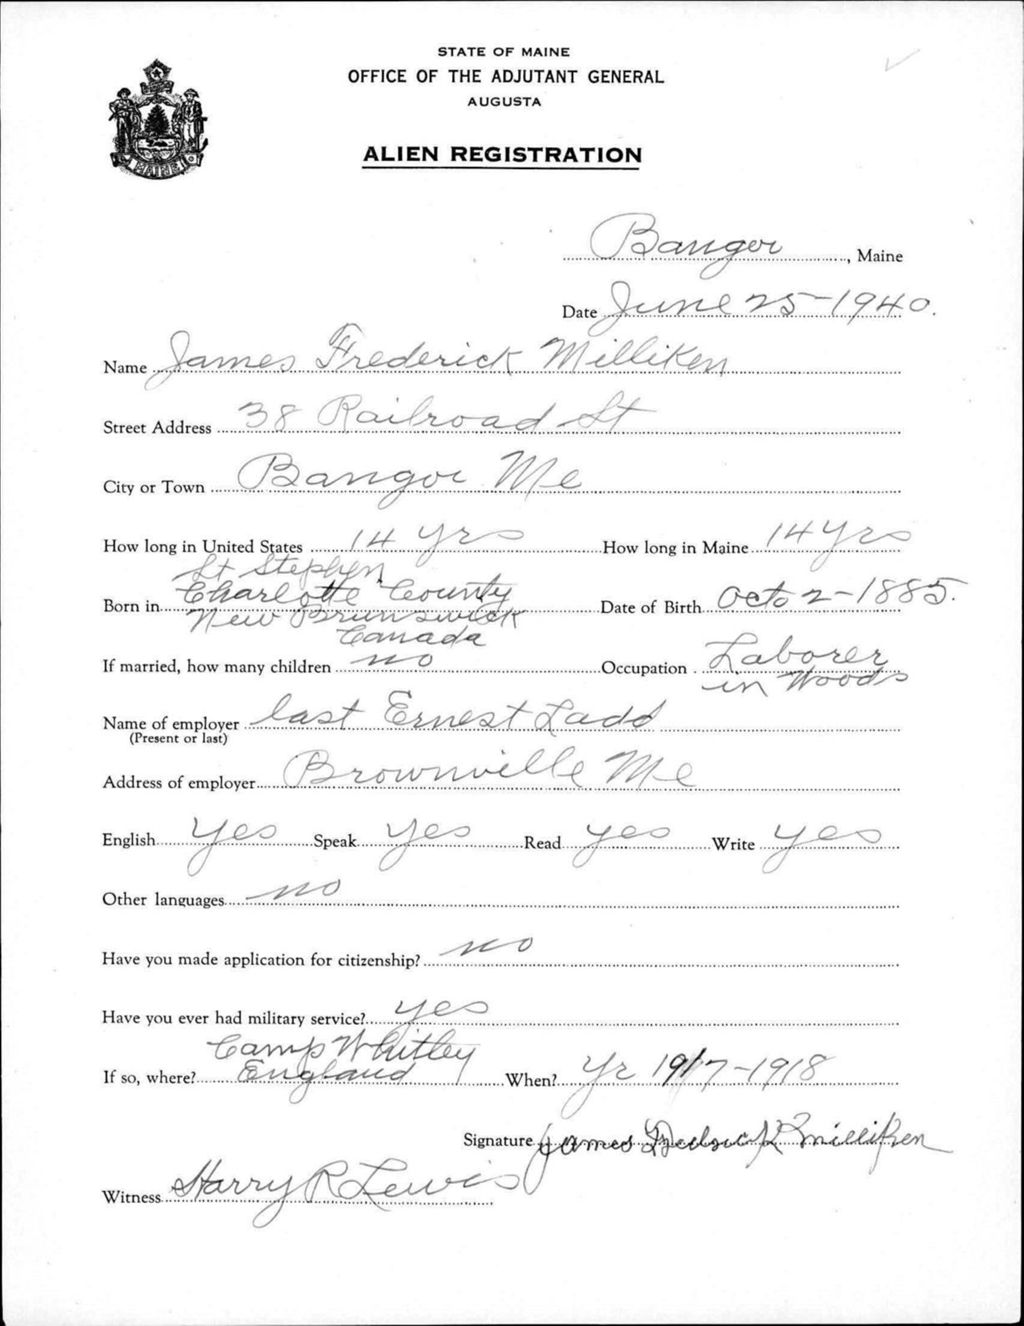 STATE OF MAINE
OFFICE OF THE ADJUTANT GENERAL
AUGUSTA
ALIEN REGISTRATION
MAINE
Bangor, Maine
Date June 25-1940.
Name James Frederick Milliken
Street Address 38 Railroad St
City or Town Bangor Me
How long in United States 14 yrs How long in Maine 14 yrs
St Stephen
Born in Charlotte County Date of Birth Oct 2-1885.
New Brunswick
Canada
If married, how many children no Occupation Laborer
in Woods
Name of employer last Ernest Ladd
(Present or last)
Address of employer Brownville Me
English yes Speak yes Read yes Write yes
Other languages no
Have you made application for citizenship? no
Have you ever had military service? yes
Camp Whitley
If so, where? England When? Yr 1917-1918
Signature James Fredrick Milliken
Witness Harry R Lewis